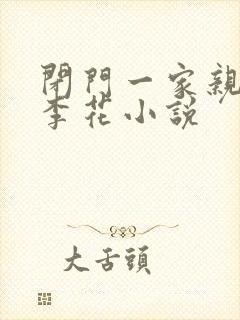 閉門一家親
李花小說
大舌頭